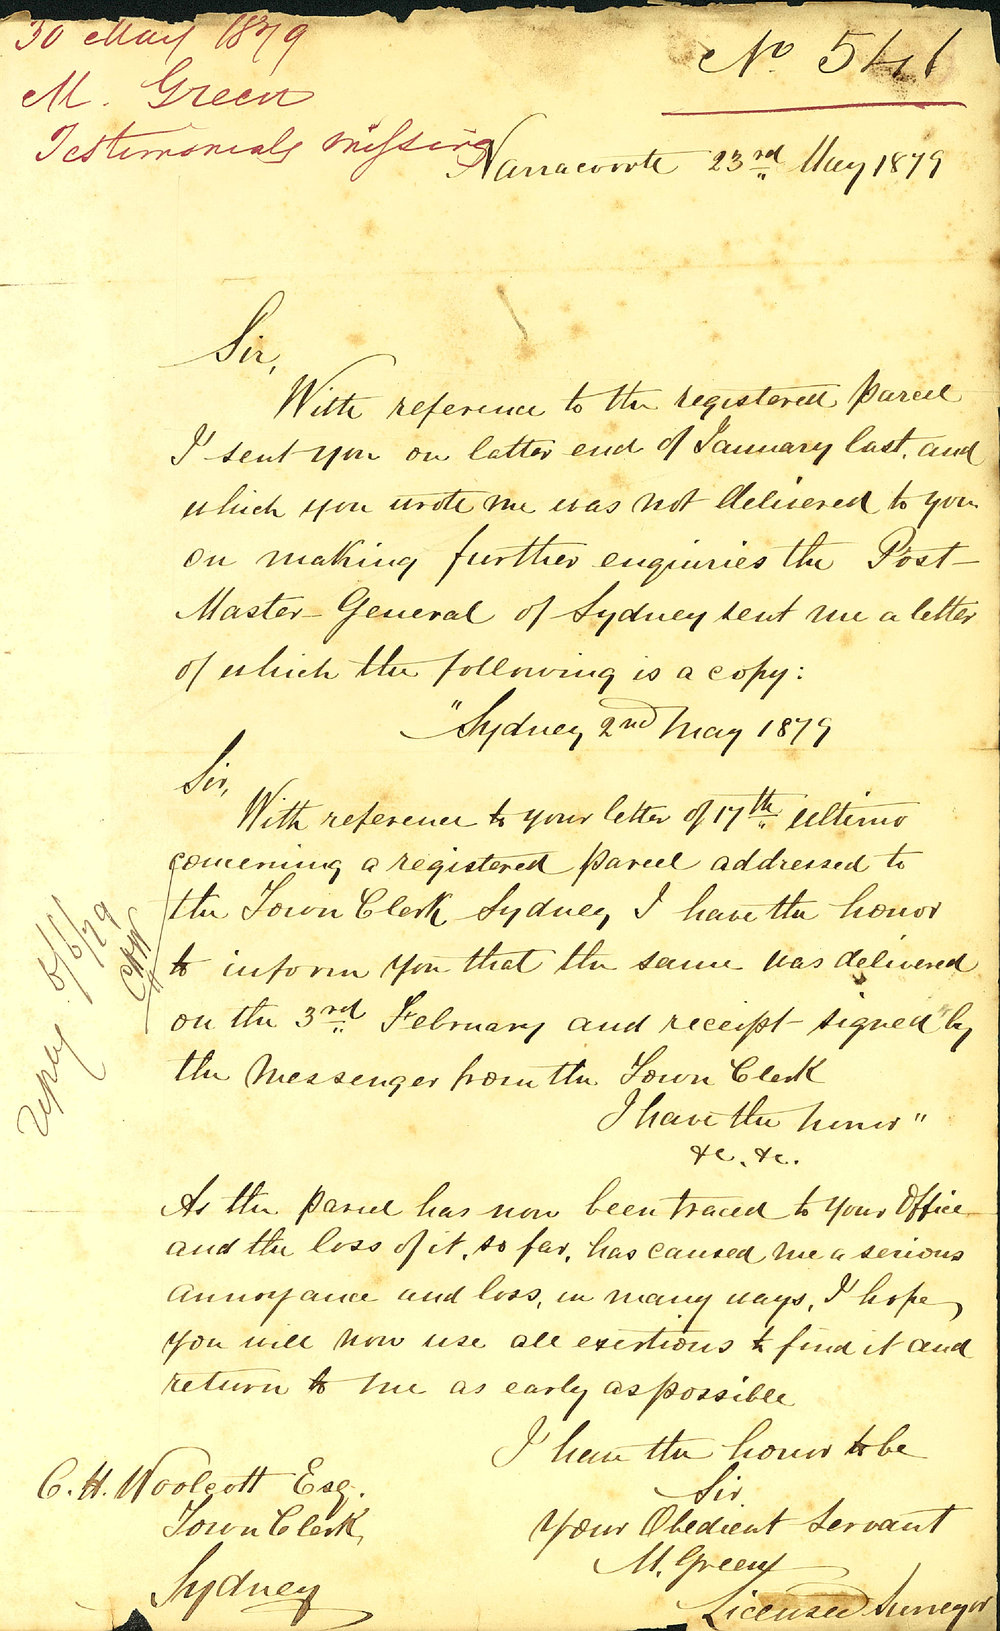 30 May 1879
M. Green
Testimonials missing
No 541
Narracoorte 23rd May 1879
Sir,
With reference to the registered parcel
I sent you on latter end of January last, and
which you wrote me was not delivered to you
on making further enquiries the Post-
Master-General of Sydney sent me a letter
of which the following is a copy:
"Sydney 2nd May 1879
Sir,
With reference to your letter of 17th ultimo
concerning a registered parcel addressed to
the Town Clerk Sydney, I have the honor
to inform you that the same was delivered
on the 3rd February and receipt signed by
the Messenger from the Town Clerk
I have the honor"
&c. &c.
As the parcel has now been traced to your Office
and the loss of it, so far, has caused me a serious
annoyance and loss, in many ways, I hope,
you will now use all exertions to find it and
return to me as early as possible
I have the honor to be
Sir
Your Obedient Servant
M. Green
Licensed Surveyor
C. H. Woolcott Esq.
Town Clerk,
Sydney
reply 6/6/79
CHW